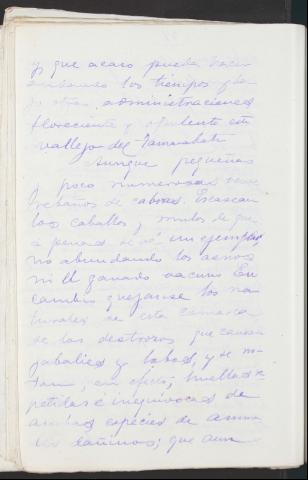 y que acaso pueda hacer
andando los tiempos y ba-
jo otras administraciones
floreciente y opulento este
valle del Tamarabate
Aunque pequeñas
y poco numerosas
rebaños de cabras. Escasean
los caballos y mulos de que
a penas se ve un ejemplar
no abundando los asnos
ni el ganado vacuno En
cambio quejanse los na-
turales de esta comarca
de los destrozos que causan
jabalies y lobos, y se no-
tan, en efecto, huellas re-
petidas é inequivocas de
ambas especies de anima-
les dañinos; que aun